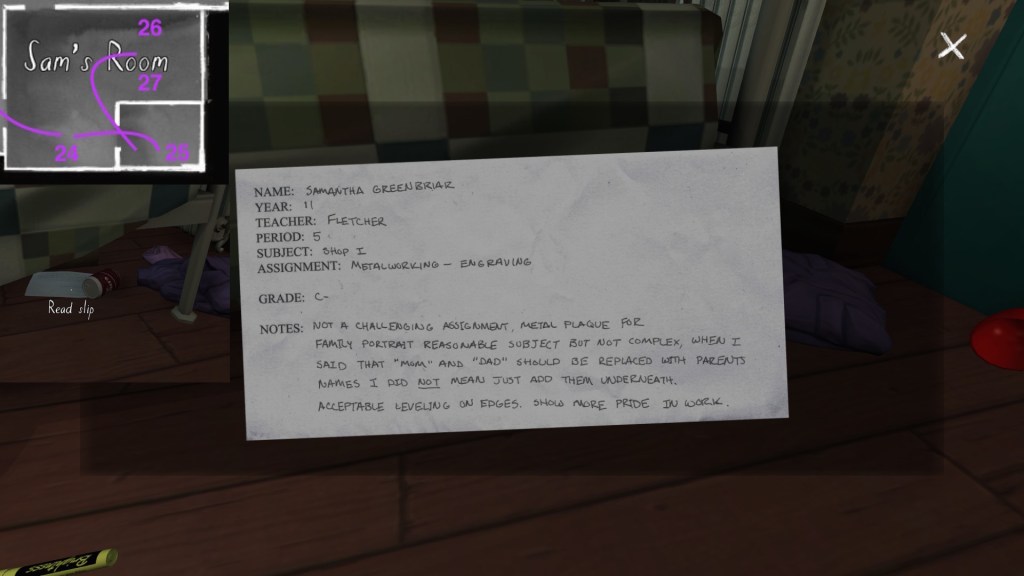 26
Sam's Room
27
24
25
Read slip
NAME: SAMANTHA GREENBRIAR
YEAR: 11
TEACHER: FLETCHER
PERIOD: 5
SUBJECT: SHOP I
ASSIGNMENT: METALWORKING - ENGRAVING
GRADE: C-
NOTES: NOT A CHALLENGING ASSIGNMENT, METAL PLAQUE FOR
FAMILY PORTRAIT REASONABLE SUBJECT BUT NOT COMPLEX, WHEN I
SAID THAT "MOM" AND "DAD" SHOULD BE REPLACED WITH PARENTS
NAMES I DID NOT MEAN JUST ADD THEM UNDERNEATH.
ACCEPTABLE LEVELING ON EDGES. SHOW MORE PRIDE IN WORK.